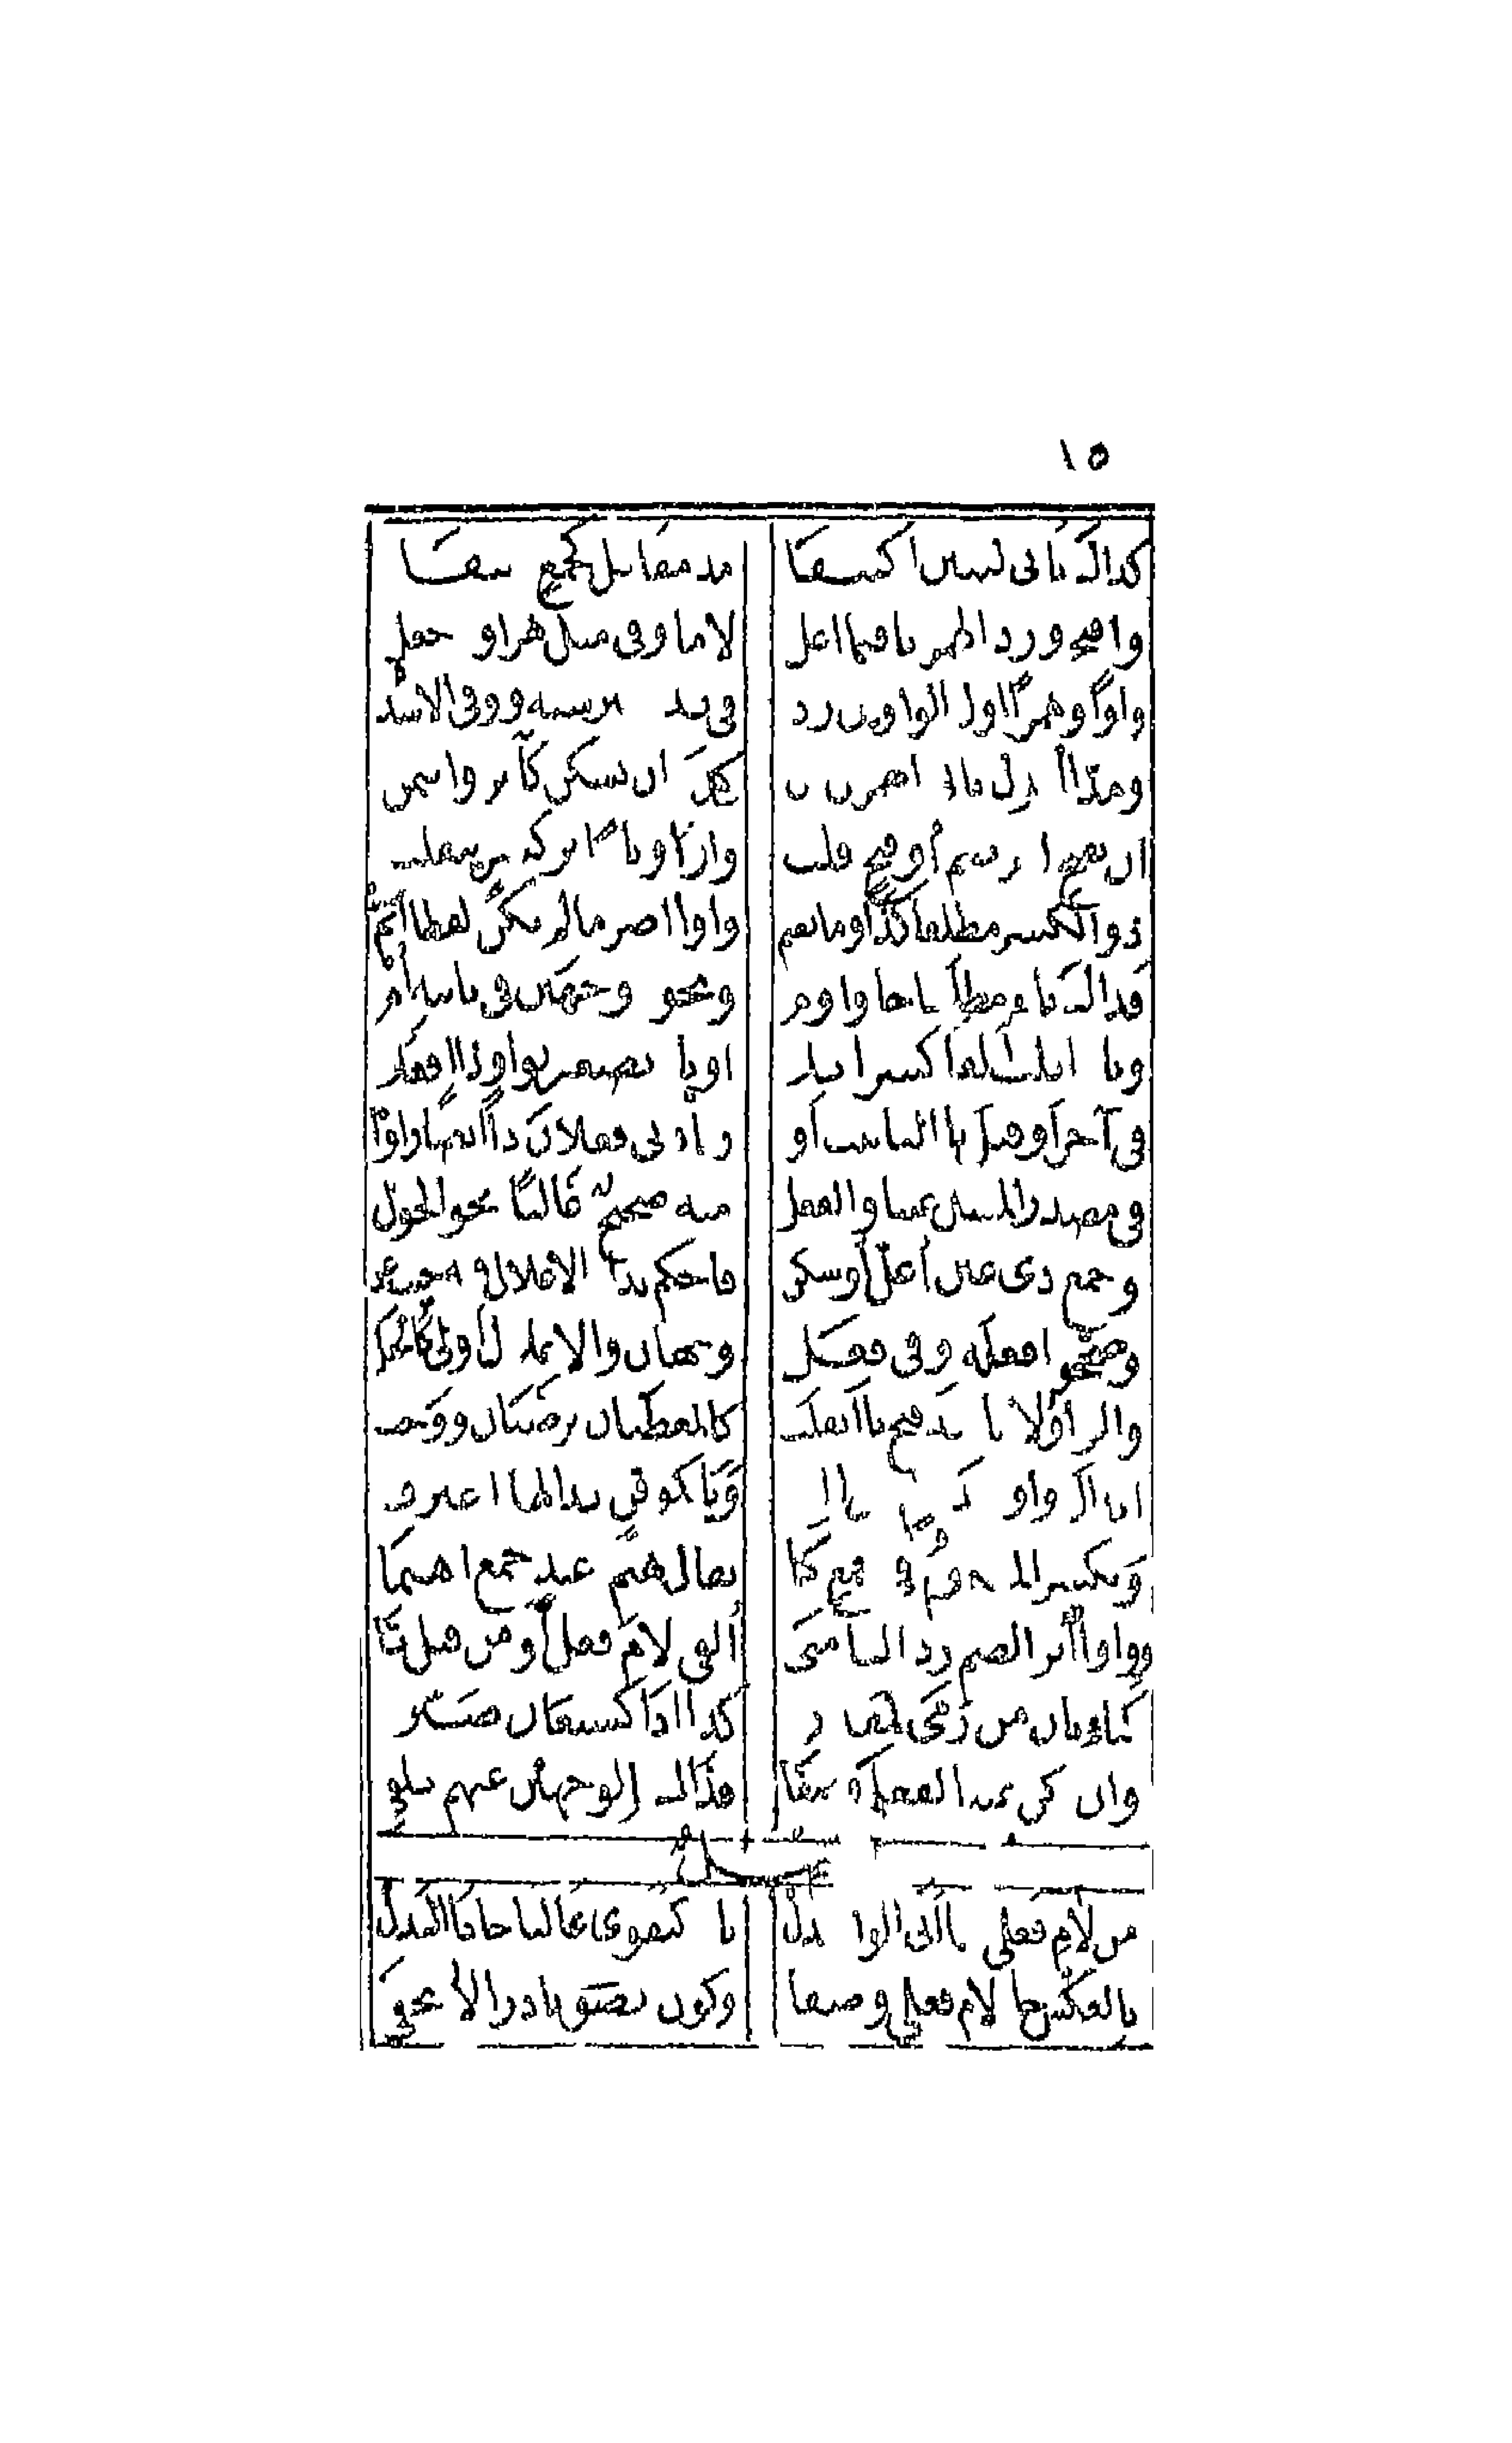 ١٥
كذاك ثاني لينين اكتنفا مد مفاعل كجمع نيفا
وافتح ورد الهمز يا فيما اعل لاما وفي مثل هراوة جعل
واوا وهمزا اول الواوين رد في بدء غير شبه ووفي الاشد
ومدا ابدل ثاني الهمزين ان يسكن كآثر وائتمن
ان يفتح اثر ضم أو فتح قلب واوا ويا اثر كسر ينقلب
ذو الكسر مطلقا كذا وما يضم واوا اصر ما لم يكن لفظا أتم
فذاك يا مطلقا جا واوم ونحو وجهين في ثانيه أم
ويا اقلب الفا كسرا تلا او يا تصغير بواو ذا افعلا
في آخر أو قبل تا التانيث أو زيادتي فعلان ذا ايضا راوا
في مصدر المعتل عينا والفعل منه صحيح غالبا نحو الحول
وجمع ذي عين أعل أو سكن فاحكم بذا الاعلال فيه حيث عن
وصححوا فعلة وفي فعل وجهان والاعلال أولى كالحيل
والواو لاما بعد فتح يا انقلب كالمعطيان يرضيان ووجب
ابدال واو ويا كموقن بذا لها اعترف
ويكسر المضموم في جمع كما يقال هيم عند جمع اهيما
وواوا أثر الضم رد اليا متى ألفي لام فعل أو من قبل تا
كتاء بان من رمى كذا اذا كسبعان صيره
وان تكن عينا لفعلى وصفا فذاك بالوجهين عنهم يلفى
فصل
من لام فعلى أتى الواو بدل يا كتقوى غالبا جا ذا البدل
بالعكس جا لام فعلى وصفا وكون قصوى نادرا لا يخفى